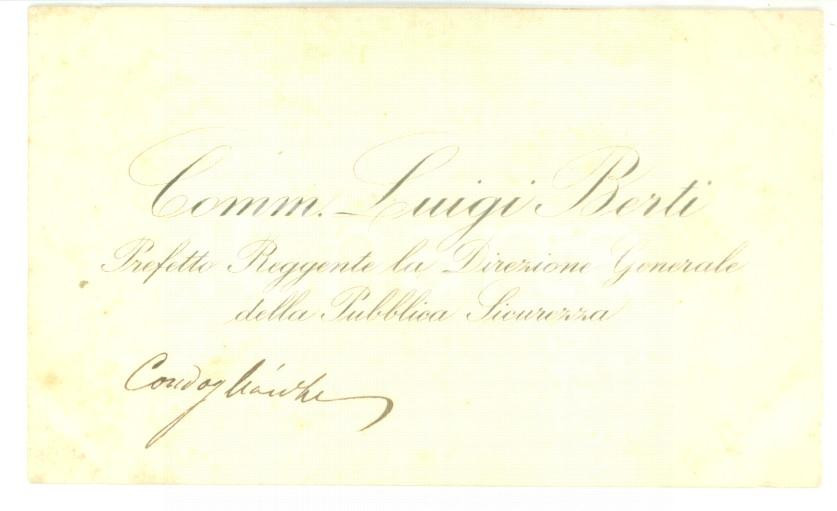 Comm. Luigi Berti
Prefetto Reggente la Direzione Generale
della Pubblica Sicurezza
Condoglianze